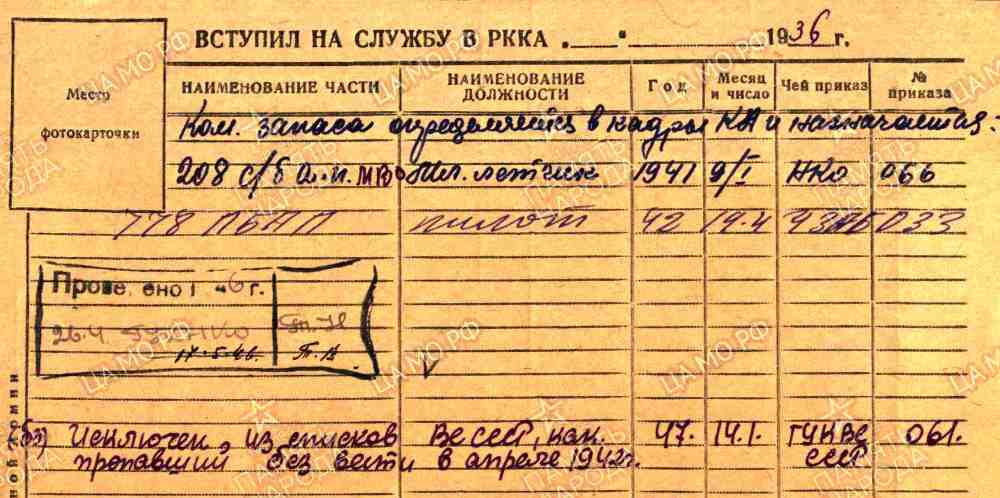 ВСТУПИЛ НА СЛУЖБУ В РККА „ “ 1936 г.
Место
фотокарточки
НАИМЕНОВАНИЕ ЧАСТИ НАИМЕНОВАНИЕ ДОЛЖНОСТИ Год Месяц и число Чей приказ № приказа
Ком. запаса определяется в кадры КА и назначается:
208 с/б а.п. МВО Мл. летчик 1941 9/I НКО 066
778 ПБАП пилот 42 19.4 033
Прове ено 6 г.
26.4
14.5.46. Т. А
V
Исключен из списков ВС ССР, как 47. 14.1. ГУК ВС 061.
пропавший без вести в апреле 1942г. ССР
ной Армии
ЦАМО РФ
ПАМЯТЬ НАРОДА